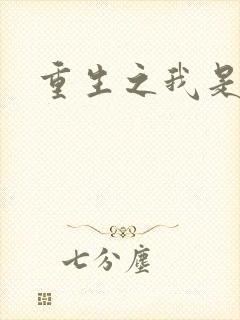 重生之我是
七分尘